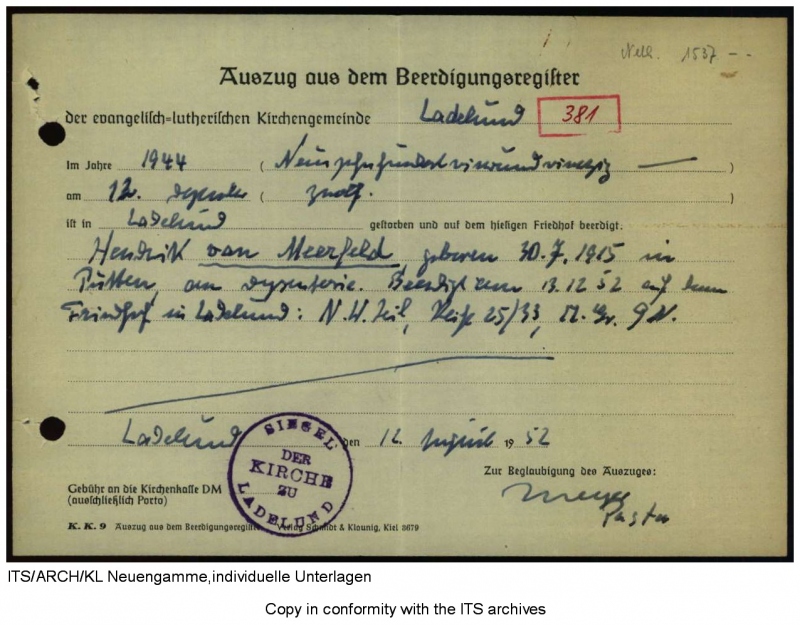 Nell. 1537 --
Auszug aus dem Beerdigungsregister
der evangelisch=lutherischen Kirchengemeinde Ladelund 381
Im Jahre 1944 ( Neunzehnhundertvierundvierzig )
am 12. Dezember ( zwölf. )
ist in Ladelund gestorben und auf dem hiesigen Friedhof beerdigt.
Hendrik van Meerfeld, geboren 30.7.1915 in
Putten, an Dysenterie. Beerdigt am 13.12 52 auf dem
Friedhof in Ladelund: N.W. Teil, Reihe 25/33, Gr. 9 N.
Ladelund, den 12. August 1952
SIEGEL
DER
KIRCHE
ZU
LADELUND
Zur Beglaubigung des Auszuges:
Gebühr an die Kirchenkasse DM
(ausschließlich Porto)
Meyer
Pastor
K. K. 9 Auszug aus dem Beerdigungsregister Verlag Schmidt & Klaunig, Kiel 3679
ITS/ARCH/KL Neuengamme,individuelle Unterlagen
Copy in conformity with the ITS archives